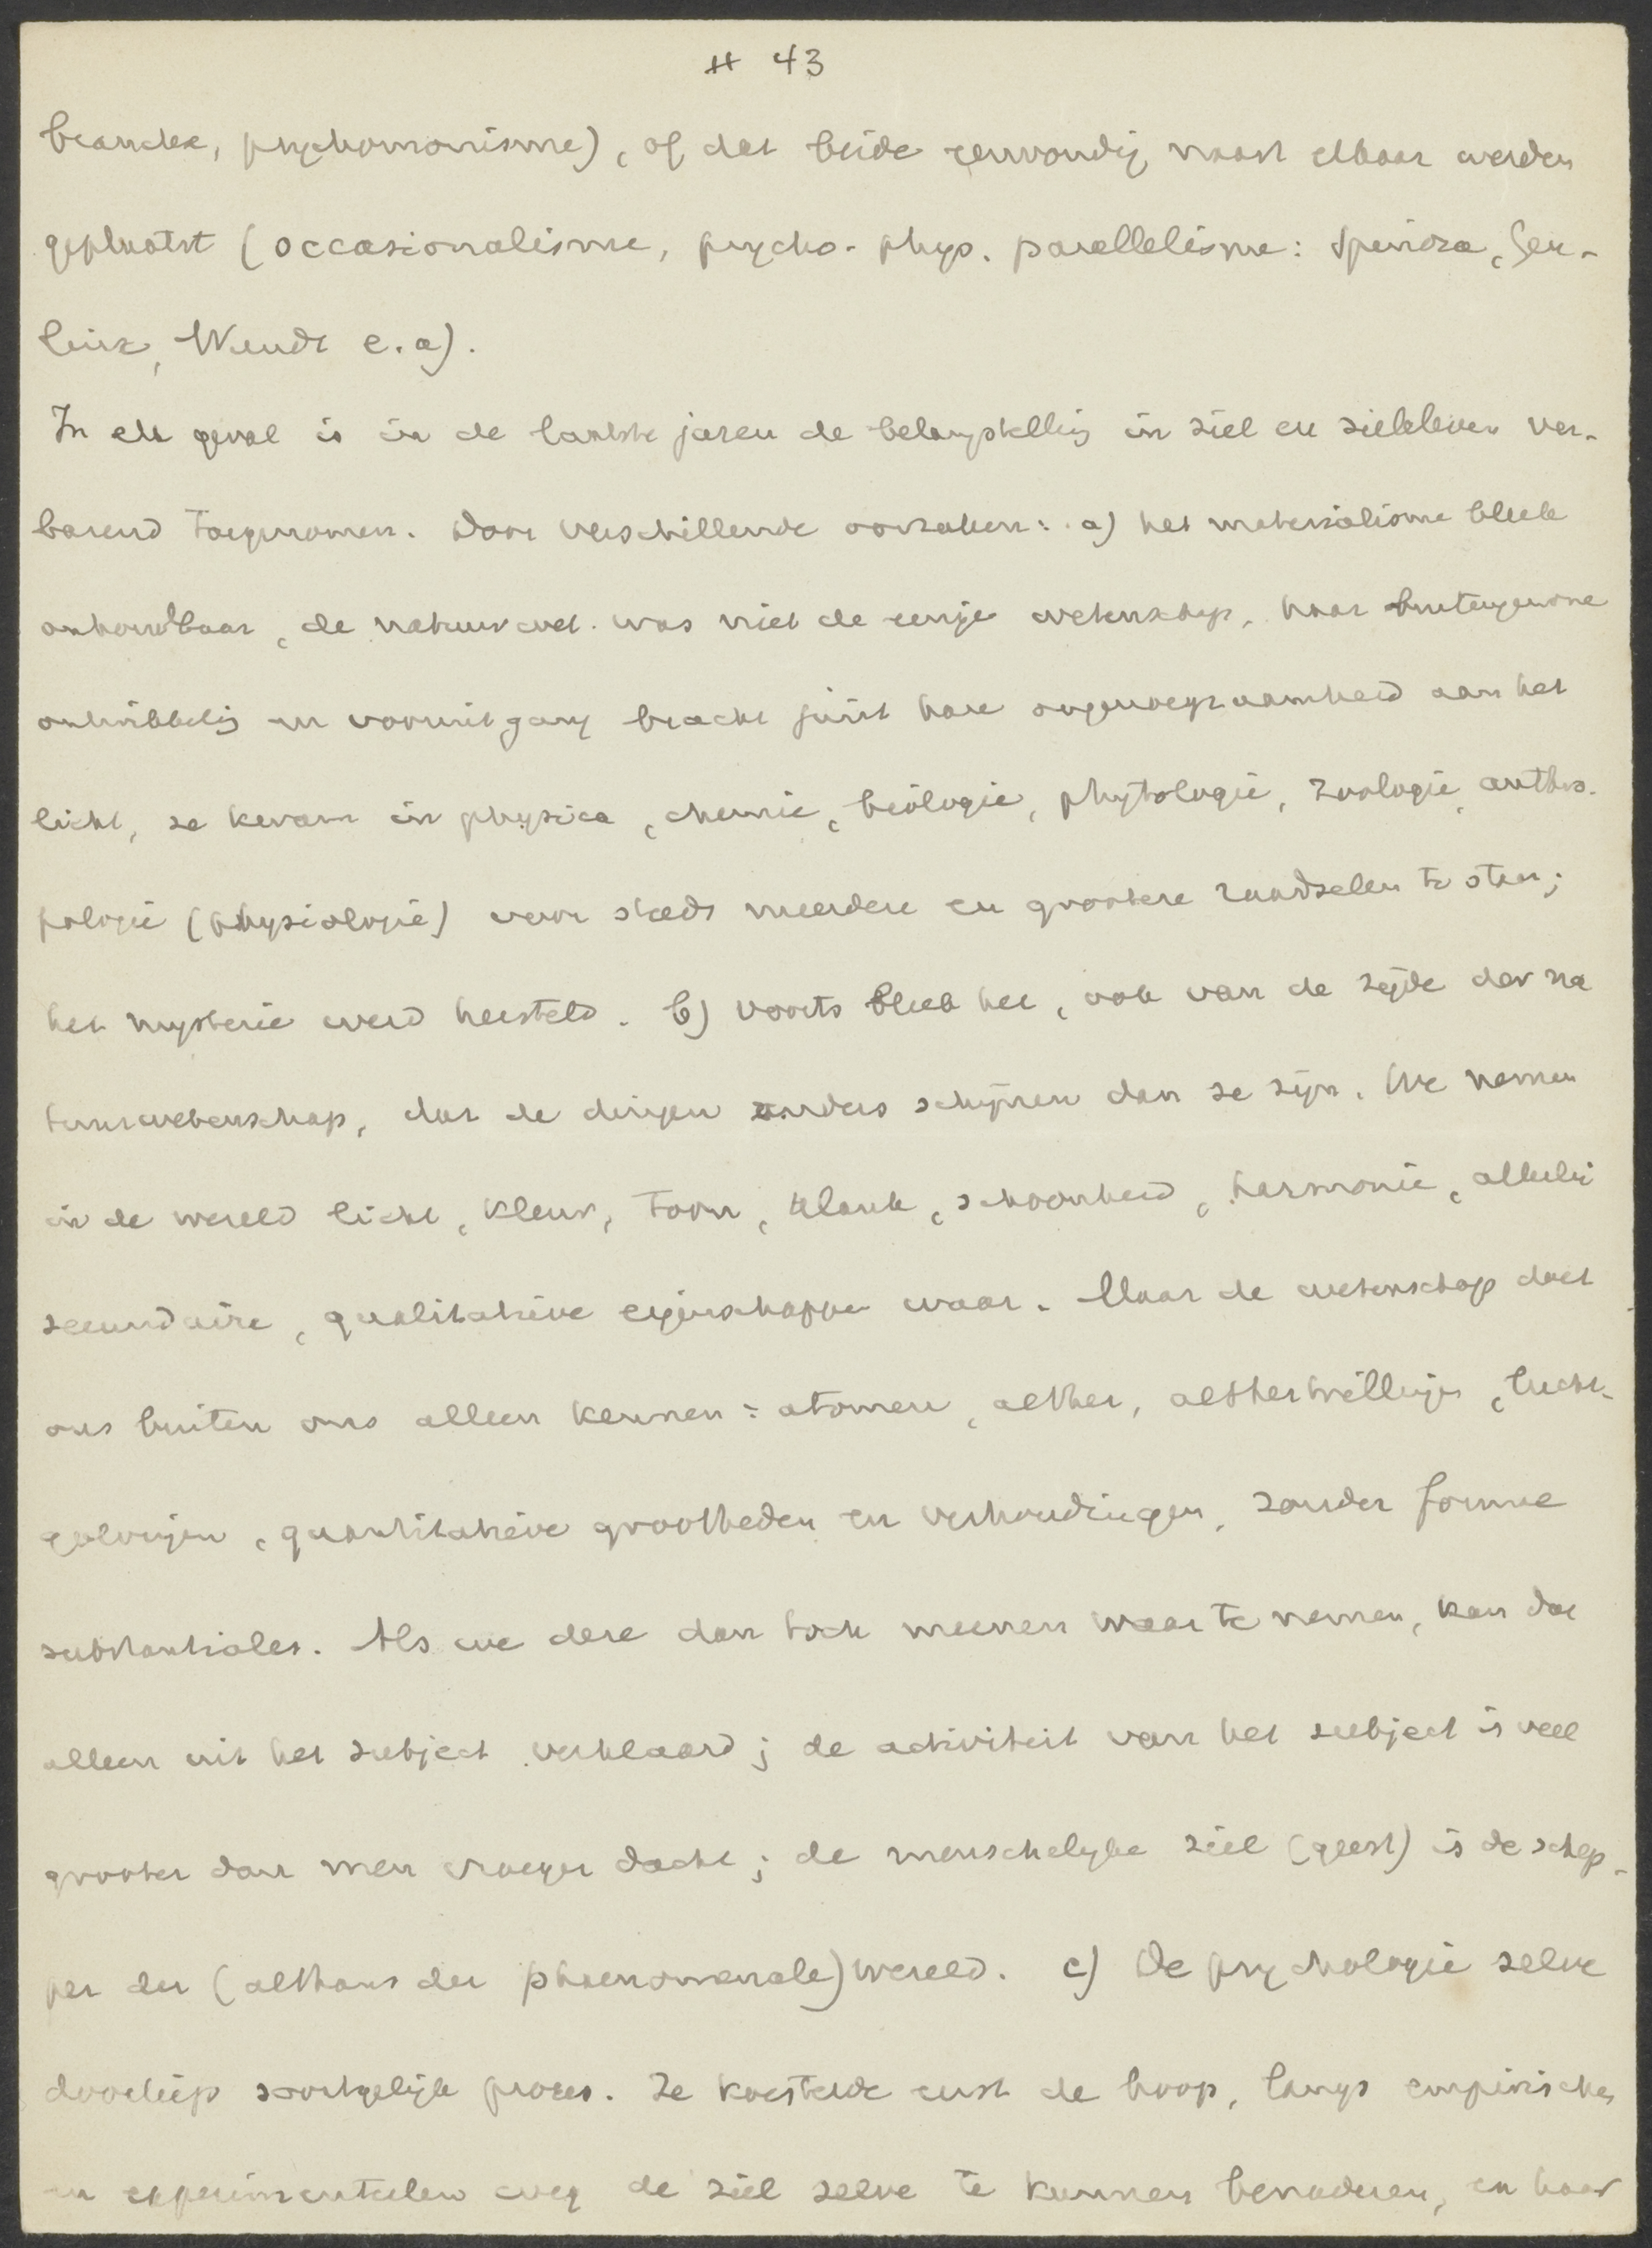 # 43
branche, psychomonisme), of dat beide eenvoudig naast elkaar werden
geplaatst (occasionalisme, psycho-phys. parellelisme: Spinoza, Leib-
Wundt e.a).
In elk geval is in de laatste jaren de belangstelling in ziel en zieleleven ver-
barend toegenomen. Door verschillende oorzaken: a) het materialisme bleek
onhoudbaar, de natuurwet. was niet de eenige wetenschap, haar buitengewone
ontwikkeling en vooruitgang bracht juist hare ongenoegzaamheid aan het
licht, ze kwam in physica, chemie, biologie, phytologie, zoologie, anthro-
pologie (physiologie) voor steeds meerdere en grootere raadselen te staan;
het mysterie werd hersteld. b) Voorts bleek het, ook van de zijde der na
tuurwetenschap, dat de dingen anders schijnen dan ze zijn. We nemen
in de wereld licht, kleur, toon, klank, schoonheid, harmonie, allerlei
secundaire, qualitatieve eigenschappen waar. Maar de wetenschap doet
ons buiten ons alleen kennen: atomen, aether, aethertrillingen, lucht-
golvingen, quantitatieve grootheden en verhoudingen, zonder formae
substantiales. Als we deze dan toch meenen waar te nemen, kan dat
alleen uit het subject verklaard; de activiteit van het subject is veel
grooter dan men vroeger dacht; de menschelyke ziel (geest) is de schep-
per der (althans der phaenomenale) wereld. c) De psychologie zelve
doorliep soortgelijk proces. Ze koesterde eerst de hoop, langs empirischen
en experimenteelen weg de ziel zelve te kunnen benaderen, en haar